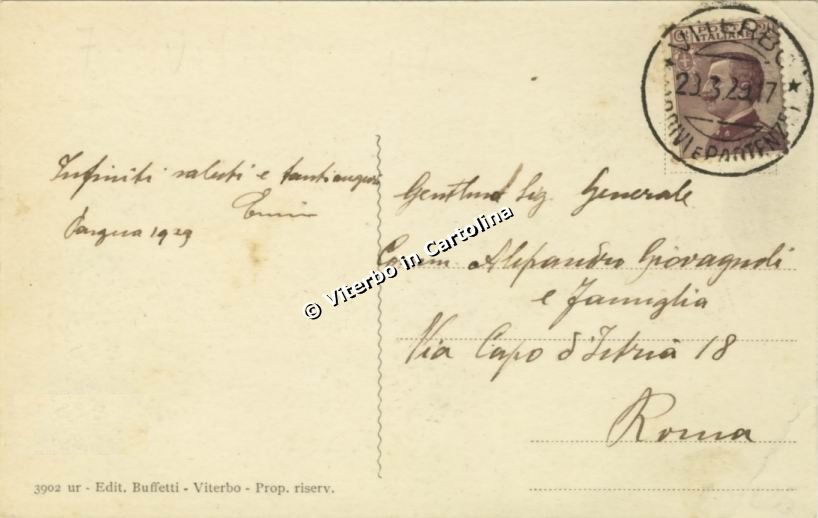 Infiniti saluti e tanti auguri
Pasqua 1929
POSTE ITALIANE
VITERBO
29.3.29.17
ARRIVI E PARTENZE
Sig. Generale
Comm. Alessandro Giovagnoli
e Famiglia
Via Capo d'Istria 18
Roma
© Viterbo in Cartolina
3902 ur - Edit. Buffetti - Viterbo - Prop. riserv.